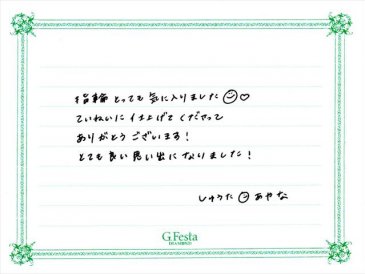 指輪とっても気に入りました☺♡
ていねいに仕上げてくださって
ありがとうございます!
とても良い思い出になりました!
しゅうた☺あやな
G.Festa
DIAMOND